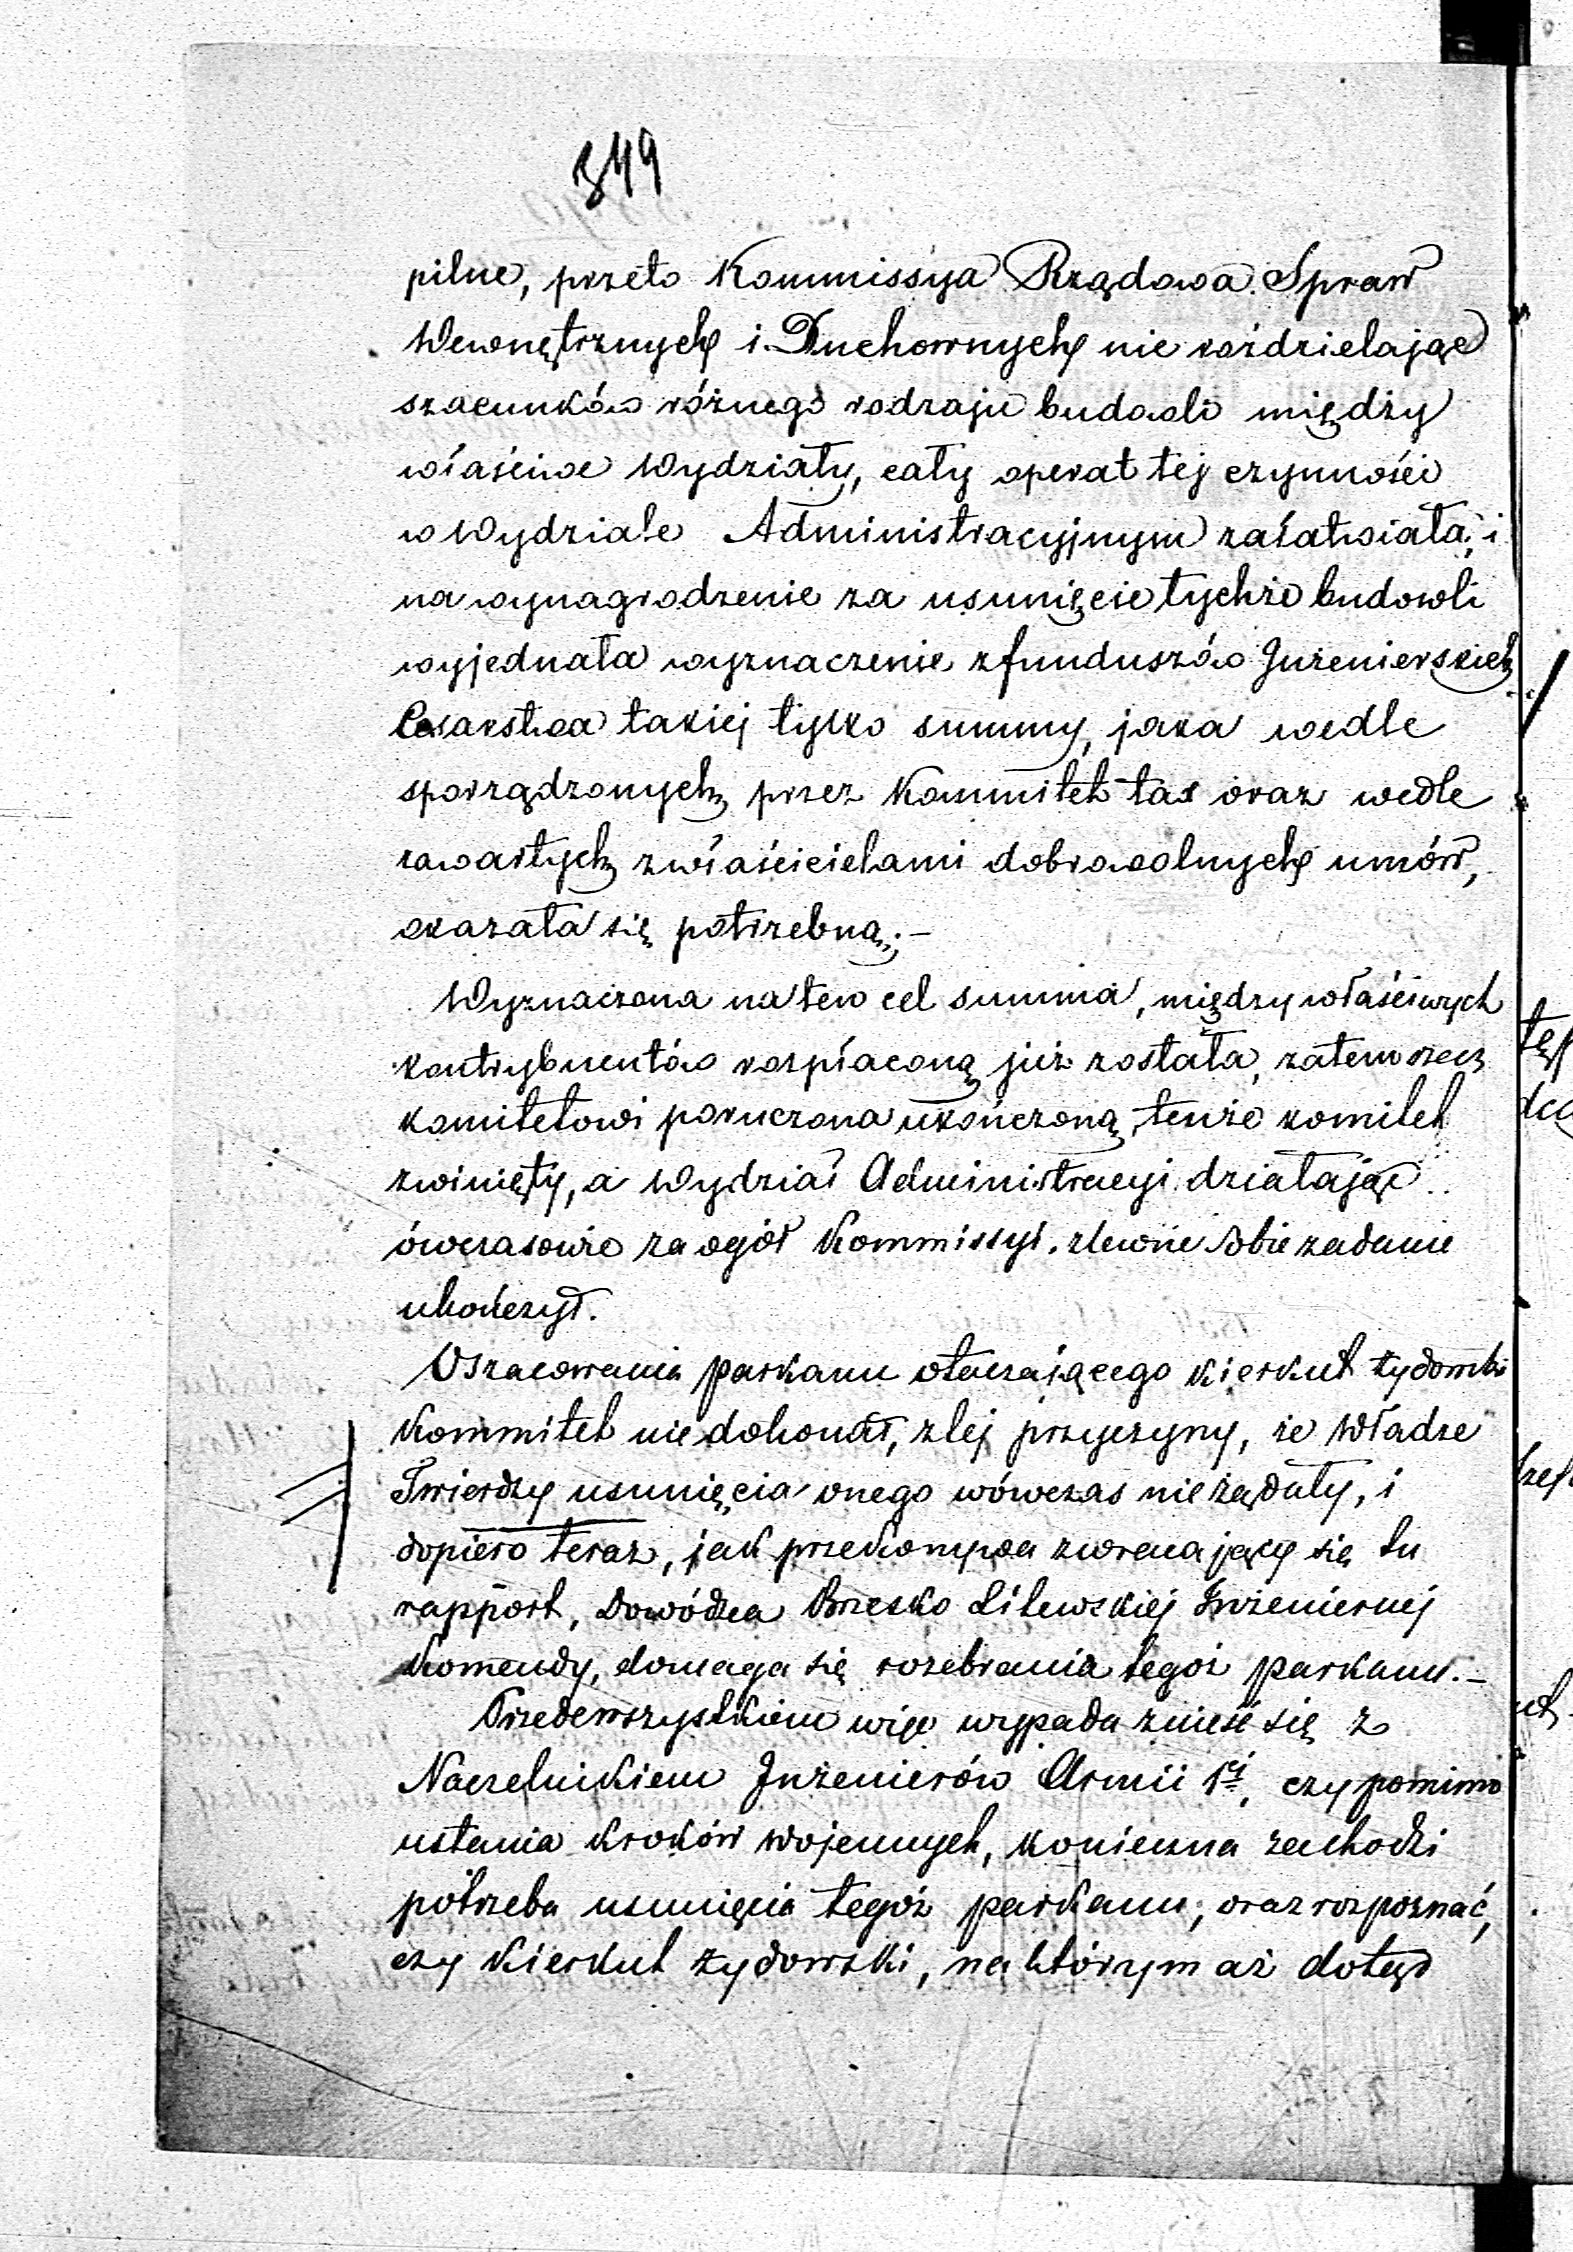 349
pilne, przeto Kommissya Rządowa Spraw
Wewnętrznych i Duchownych nie roździelając
szacunków różnego rodzaju budowli między
właściwe Wydziały, cały operat tej czynności
w Wydziale Administracyjnym załatwiała, i
na wynagrodzenie za usunięcie tychże budowli
wyjednała wyznaczenie z funduszów Inżenierskich
Cesarstwa takiej tylko summy, jaka wedle
sporządzonych przez Kommitet tax oraz wedle
zawartych z właścicielami dobrowolnych umów,
okazała się potrzebną.–
Wyznaczona na ten cel summa, między właściwych
kontrybuentów rozpłaconą już została, zatem rzecz
komitetowi poruczona ukończoną, tenże komitet
zwinięty, a Wydział Administracyi działając
ówczasowie za ogół Kommissyi. zlewne sobie zadanie
ukończył.
Oszacowania parkanu otaczającego kierkut żydowski
Kommitet nie dokonał, z tej przyczyny, że Władze
Twierdzy usunięcia onego wówczas nie żądały, i
dopiero teraz, jak przekonywa zwracający się tu
rapport, Dowódzca Brzesko Litewskiej Inżeniernej
Komendy, domaga się rozebrania tegoż parkanu.–
Przedewszystkiem więc wypada znieść się z
Naczelnikiem Inżenierów Armii 1éj, czy pomimo
ustania kroków wojennych, konieczna zachodzi
potrzeba usunięcia tegoż parkanu, oraz rozpoznać,
czy Kierkut żydowski, na którym aż dotąd